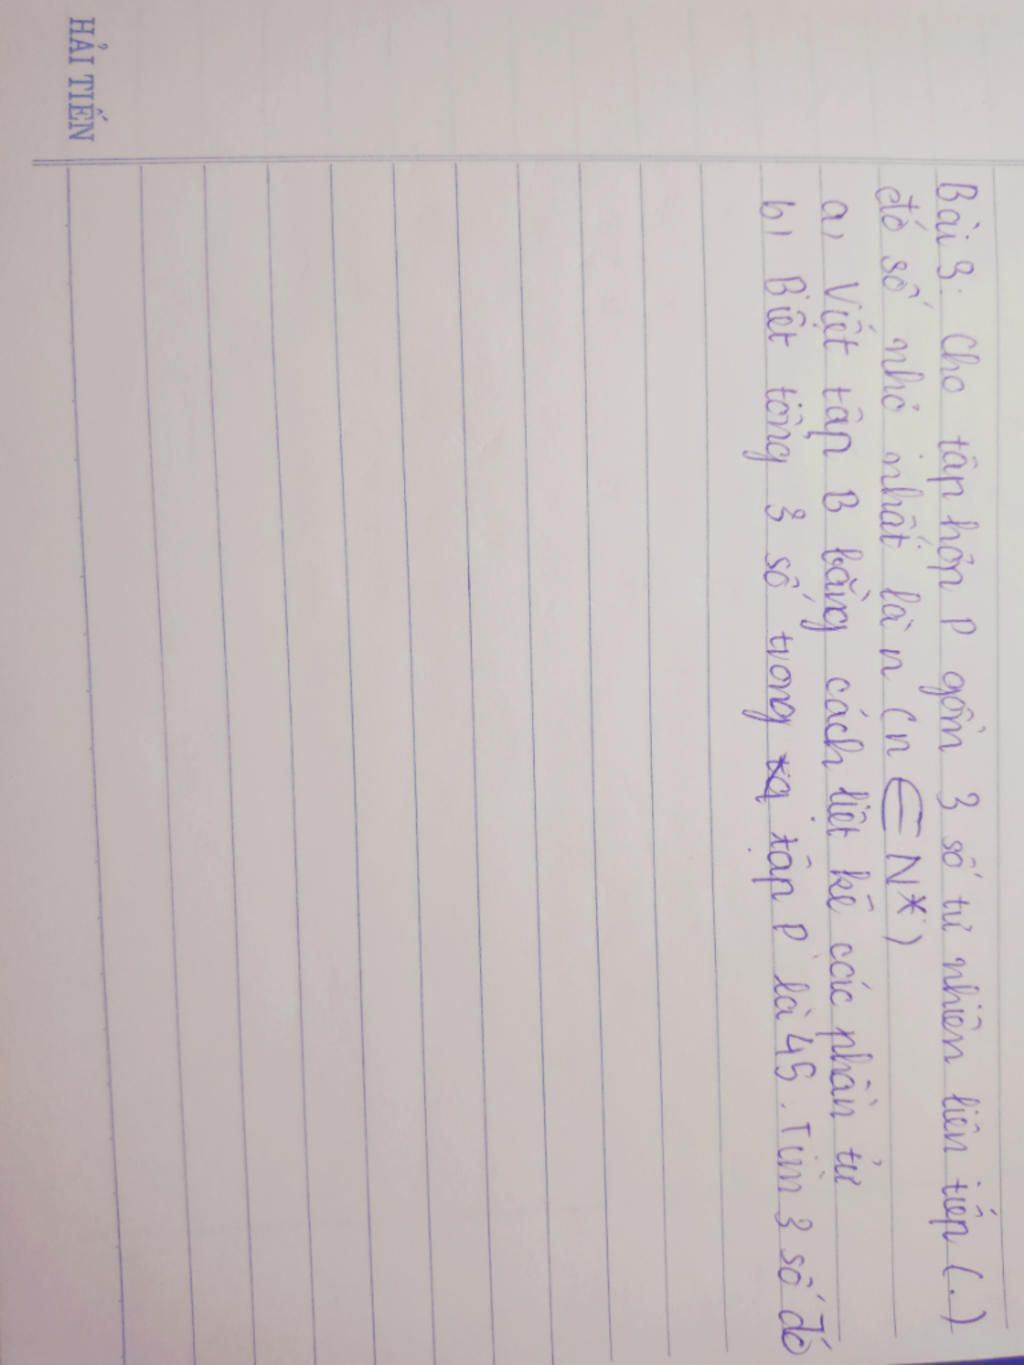 HẢI TIẾN
Bài 3: Cho tập hợp P gồm 3 số tự nhiên liên tiếp (.)
đó số nhỏ nhất là n (n ∈ N*)
a, Viết tập B bằng cách liệt kê các phần tử
b, Biết tổng 3 số trong tập P là 45. Tìm 3 số đó